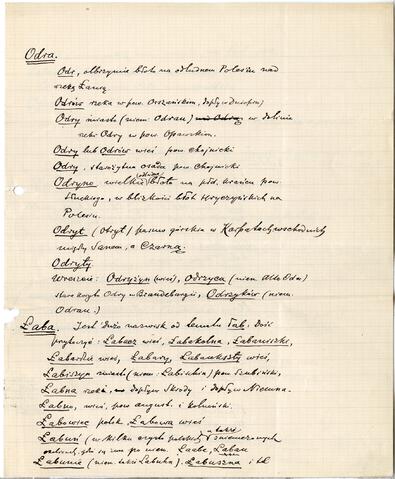 Odra.
Odr, olbrzymie błoto na odludnem Polesiu nad
rzeką Ławą.
Odrów rzeka w pow. Orszańskim, dopływ Dniepru)
Odry miasto (niem. Odrau) w dolinie
rzeki Odry w pow. Opawskim.
Odry lub Odrów wieś pow. Chojnicki
Odry, starożytna osada pow. Chojnicki
Odryno wielkie błoto na płd. krańcu pow.
Pińskiego, w bliskości błot Hryczyńskich na
Polesiu.
Odryt (Otryt) pasmo górskie w Karpatach wschodnich
między Sanem, a Czarną.
Odryty.
Wreszcie: Odrzyżyn (wieś), Odrzyca (niem. Alte Oder)
stare koryto Odry w Brandeburgii, Odrzyków (niem.
Odrau.)
Łaba. Jest dużo nazwisk od tematu łab, dość
przytoczyć: Łabacz wieś, Łabakolna, Łabaniszki,
Łabardie wieś, Łabary, Łabaukszty wieś,
Łabiszyn miasto (niem. Labischin) pow. Szubiński,
Łabna rzeka, dopływ Skrody i dopływ Niemna.
Łabno, wieś, pow. august. i kolneński.
Łabowiec potok, Łabowa wieś
Łabuń (w kilku czysto polskich i także zniemczonych
gdzie są one po niem. Laabe, Labau
Łabunie (niem. także Labuhn). Łabuszna i td